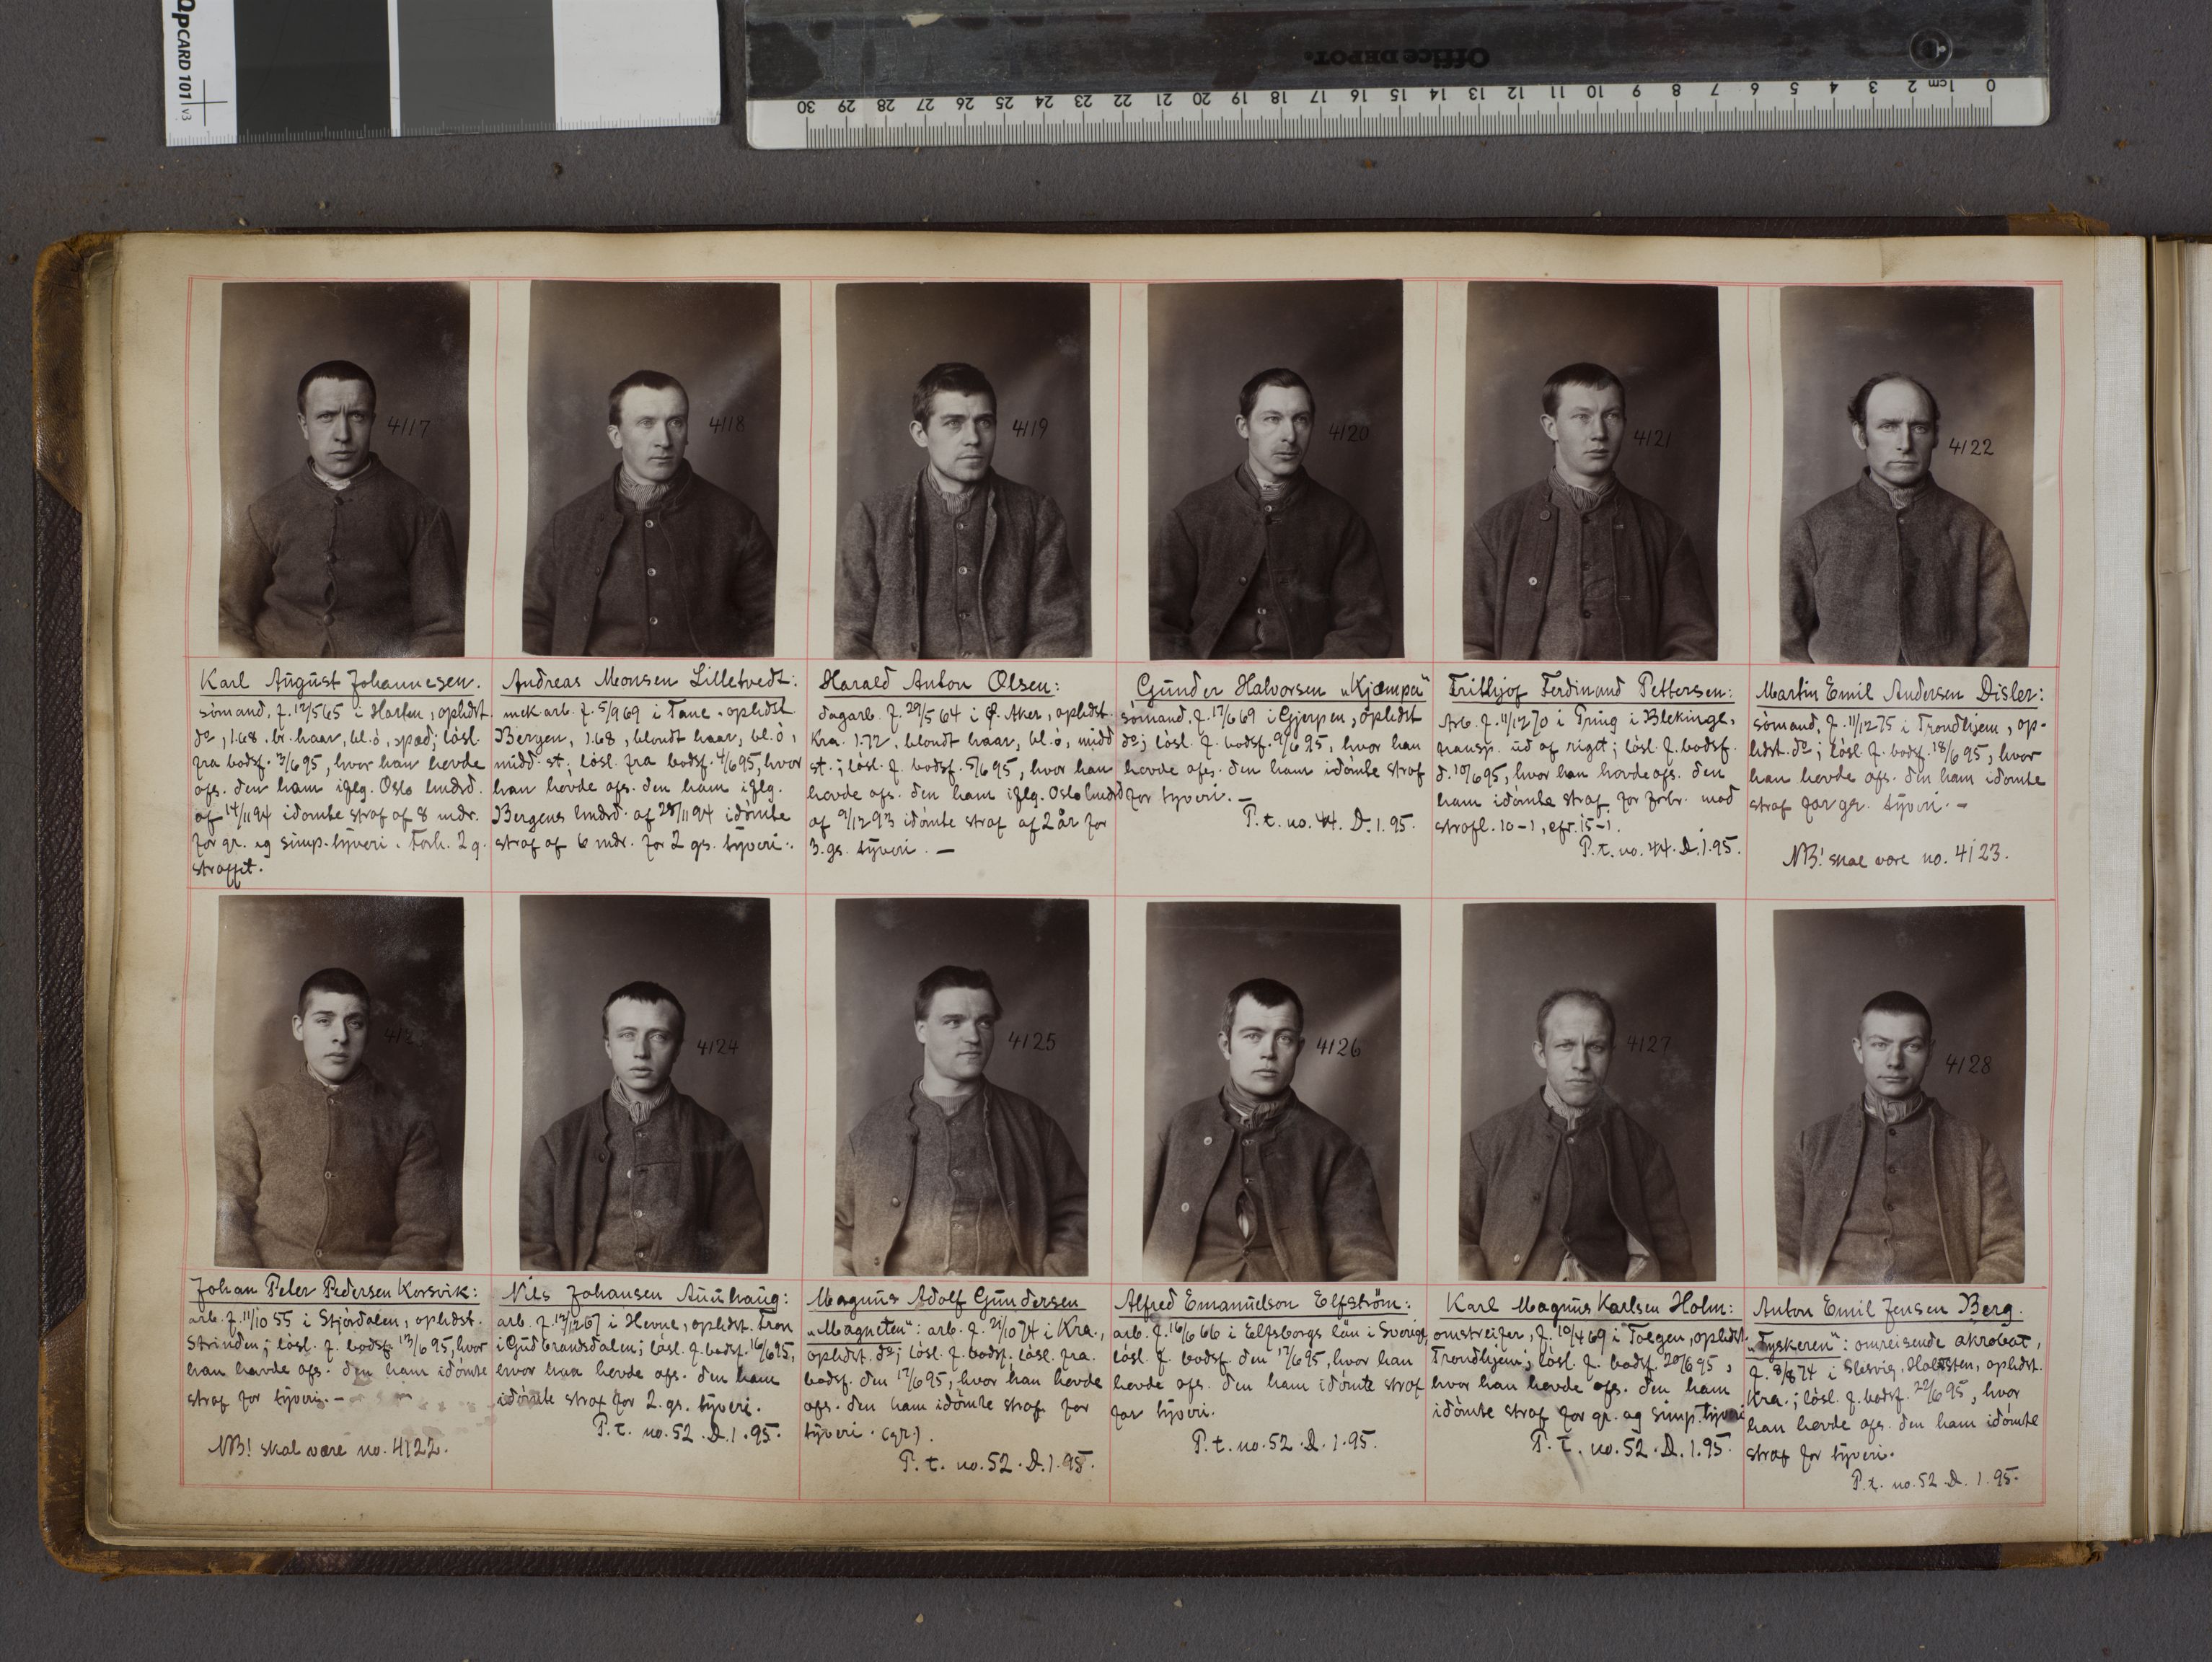 QPCARD 101 v3
Office DEPOT.
0 1cm 2 3 4 5 6 7 8 9 10 11 12 13 14 15 16 17 18 19 20 21 22 23 24 25 26 27 28 29 30
4117
4118
4119
4120
4121
4122
Karl August Johannesen.
sömand, f. 12/5 65 i Horten, opldst.
do, 1.68. br. haar, bl. ö, spæd; lösl.
fra bodsf. 3/6 95, hvor han hevde
afs. den ham iflg. Oslo lmdrd.
af 14/11 94 idömte straf af 8 mdr.
for gr. og simp. tyveri. Forh. 2 g.
straffet.
Andreas Monsen Lilletvedt:
mek. arb. f. 5/9 69 i Fane. opldst.
Bergen, 1.68, blondt haar, bl. ö,
midd. st; lösl. fra bodsf. 4/6 95, hvor
han hevde afs. den ham iflg.
Bergens lmdrd. af 28/11 94 idömte
straf af 6 mdr. for 2 gs. tyveri.
Harald Anton Olsen:
dagarb. f. 29/5 64 i Ø. Aker, opldst.
Kra. 1.72, blondt haar, bl. ö, midd
st.; lösl. f. bodsf. 5/6 95, hvor han
hevde afs. den ham iflg. Oslo lmdrd
af 9/12 93 idömte straf af 2 år for
3. gs. tyveri. —
Gunder Halvorsen „Kjæmpa"
sömand, f. 17/6 69 i Gjerpen, opldst
do; lösl. f. bodsf. 9/6 95, hvor han
hevde afs. den ham idömte straf
for tyveri. —
P. t. no. 44. D. 1. 95.
Frithjof Ferdinand Pettersen:
Arb. f. 11/12 70 i Tring i Blekinge,
transp. ud af riget; lösl. f. bodsf.
d. 10/6 95, hvor han hevde afs. den
ham idömte straf for forbr. mod
strafl. 10-1, cfr. 15-1.
P. t. no. 44. D. 1. 95.
Martin Emil Andersen Disler:
sömand, f. 11/12 75 i Trondhjem, op-
ldst. do; lösl. f. bodsf. 18/6 95, hvor
han hevde afs. den ham idömte
straf for gr. tyveri. —
NB! skal være no. 4123.
4124
4125
4126
4127
4128
Johan Peter Pedersen Korsvik:
arb. f. 11/10 55 i Stjördalen, opldst.
Strinden; lösl. f. bodsf. 13/6 95, hvor
han havde afs. den ham idömte
straf for tyveri. —
NB! skal være no. 4122.
Nils Johansen Aunhaug:
arb. f. 12/12 67 i Hevne, opldst. Fron
i Gudbrandsdalen; lösl. f. bodsf. 16/6 95,
hvor han hevde afs. den ham
idömte straf for 2. gs. tyveri.
P. t. no. 52. D. 1. 95.
Magnus Adolf Gundersen
„Magneten": arb. f. 21/10 74 i Kra.,
opldst. do; lösl. f. bodsf. lösl. fra.
bodsf. den 17/6 95, hvor han hevde
afs. den ham idömte straf for
tyveri. (gr.).
P. t. no. 52. D. 1. 95.
Alfred Emanuelson Elfström:
arb. f. 16/6 66 i Elfsborgs län i Sverige,
lösl. f. bodsf. den 17/6 95, hvor han
hevde afs. den ham idömte straf
for tyveri.
P. t. no. 52. D. 1. 95.
Karl Magnus Karlsen Holm:
omstreifer, f. 10/4 69 i Tolgen, opldst.
Trondhjem; lösl. f. bodsf. 20/6 95,
hvor han hevde afs. den ham
idömte straf for gr. og simp. tyveri
P. t. no. 52. D. 1. 95.
Anton Emil Jensen Berg.
„Tyskeren": omreisende akrobat,
f. 8/8 74 i Slesvig. Holsten, opldst.
Kra.; lösl. f. bodsf. 22/6 95, hvor
han hevde afs. den ham idömte
straf for tyveri.
P. t. no. 52. D. 1. 95.